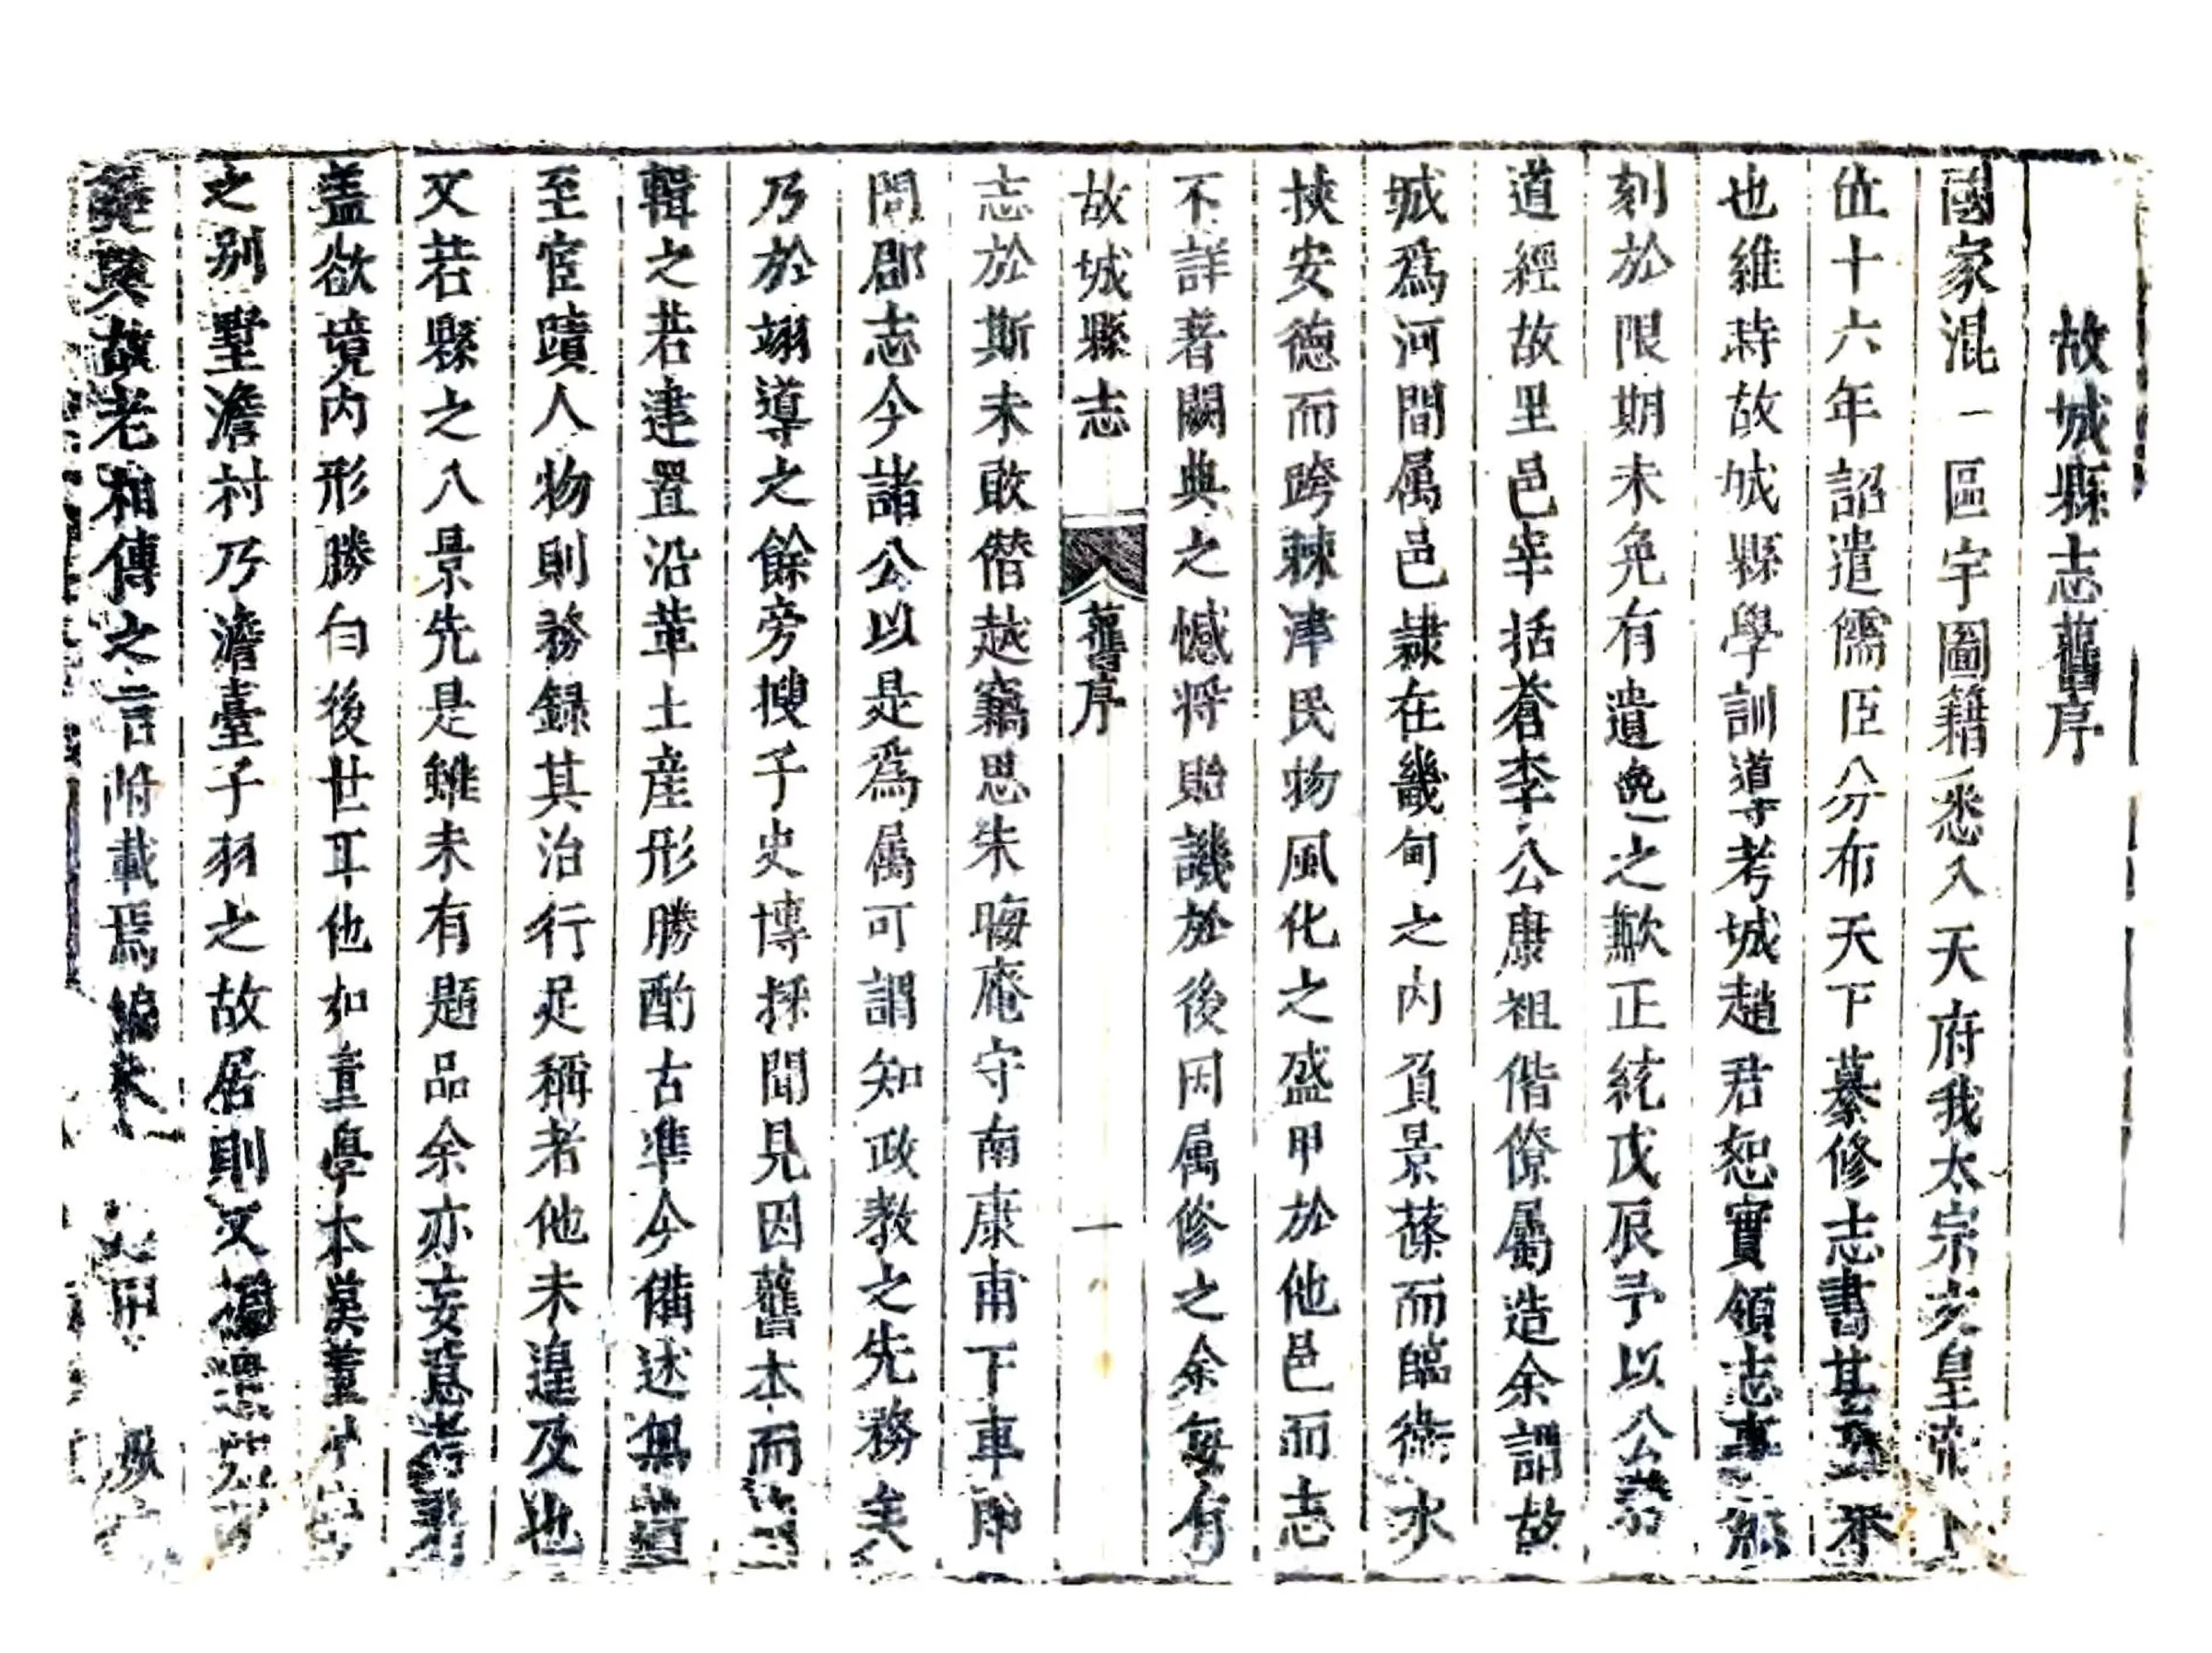 故城縣志舊序
國家混一區宇圖籍悉入天府我太宗文皇帝
位十六年詔遣儒臣分布天下纂修志書甚盛
也維時故城縣學訓導考城趙君恕實領志事
刻於限期未免有遺逸之歉正統戊辰予以公
道經故里邑宰括蒼李公康祖偕僚屬造余謂故
城爲河間属邑隷在畿甸之内負景蓨而臨衛水
挾安德而跨棘津民物風化之盛甲於他邑而志
不詳著闕典之憾将貽譏於後因属修之余每有
故城縣志 舊序 一
志於斯未敢僭越竊思朱晦庵守南康甫下車即
問郡志今諸公以是爲属可謂知政教之先務矣
乃於翊導之餘旁搜子史博採聞見因舊本而
輯之若建置沿革土産形勝酌古凖今備述無遺
至宦蹟人物則務録其治行足稱者他未遑及也
又若縣之八景先是雖未有題品余亦妄意
盖欲境内形勝白後世耳他如董學本漢董
之别墅澹村乃澹臺子羽之故居則又
故老相傳之言附載焉編